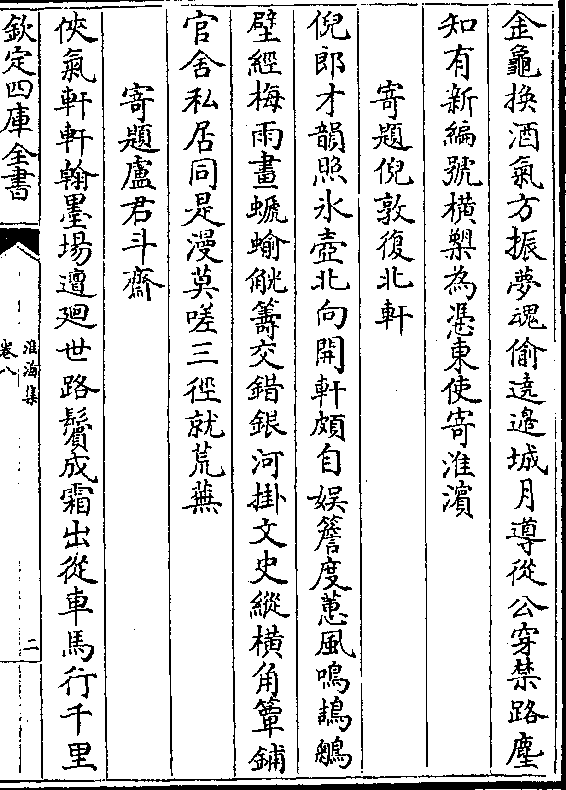 金龜換酒氣方振夢魂偷遶邉城月導從公穿禁路塵
知有新編號横槊為憑東使寄淮濵
寄題倪敦復北軒
倪郎才韻照氷壺北向開軒頗自娱簷度蕙風鳴鴶鵃
壁經梅雨畫螔蝓觥籌交錯銀河掛文史縱横角簟鋪
官舍私居同是漫莫嗟三徑就荒蕪
寄題盧君斗齋
俠氣軒軒翰墨場邅廻世路鬢成霜出從車馬行千里
欽定四庫全書
淮海集
卷八
二